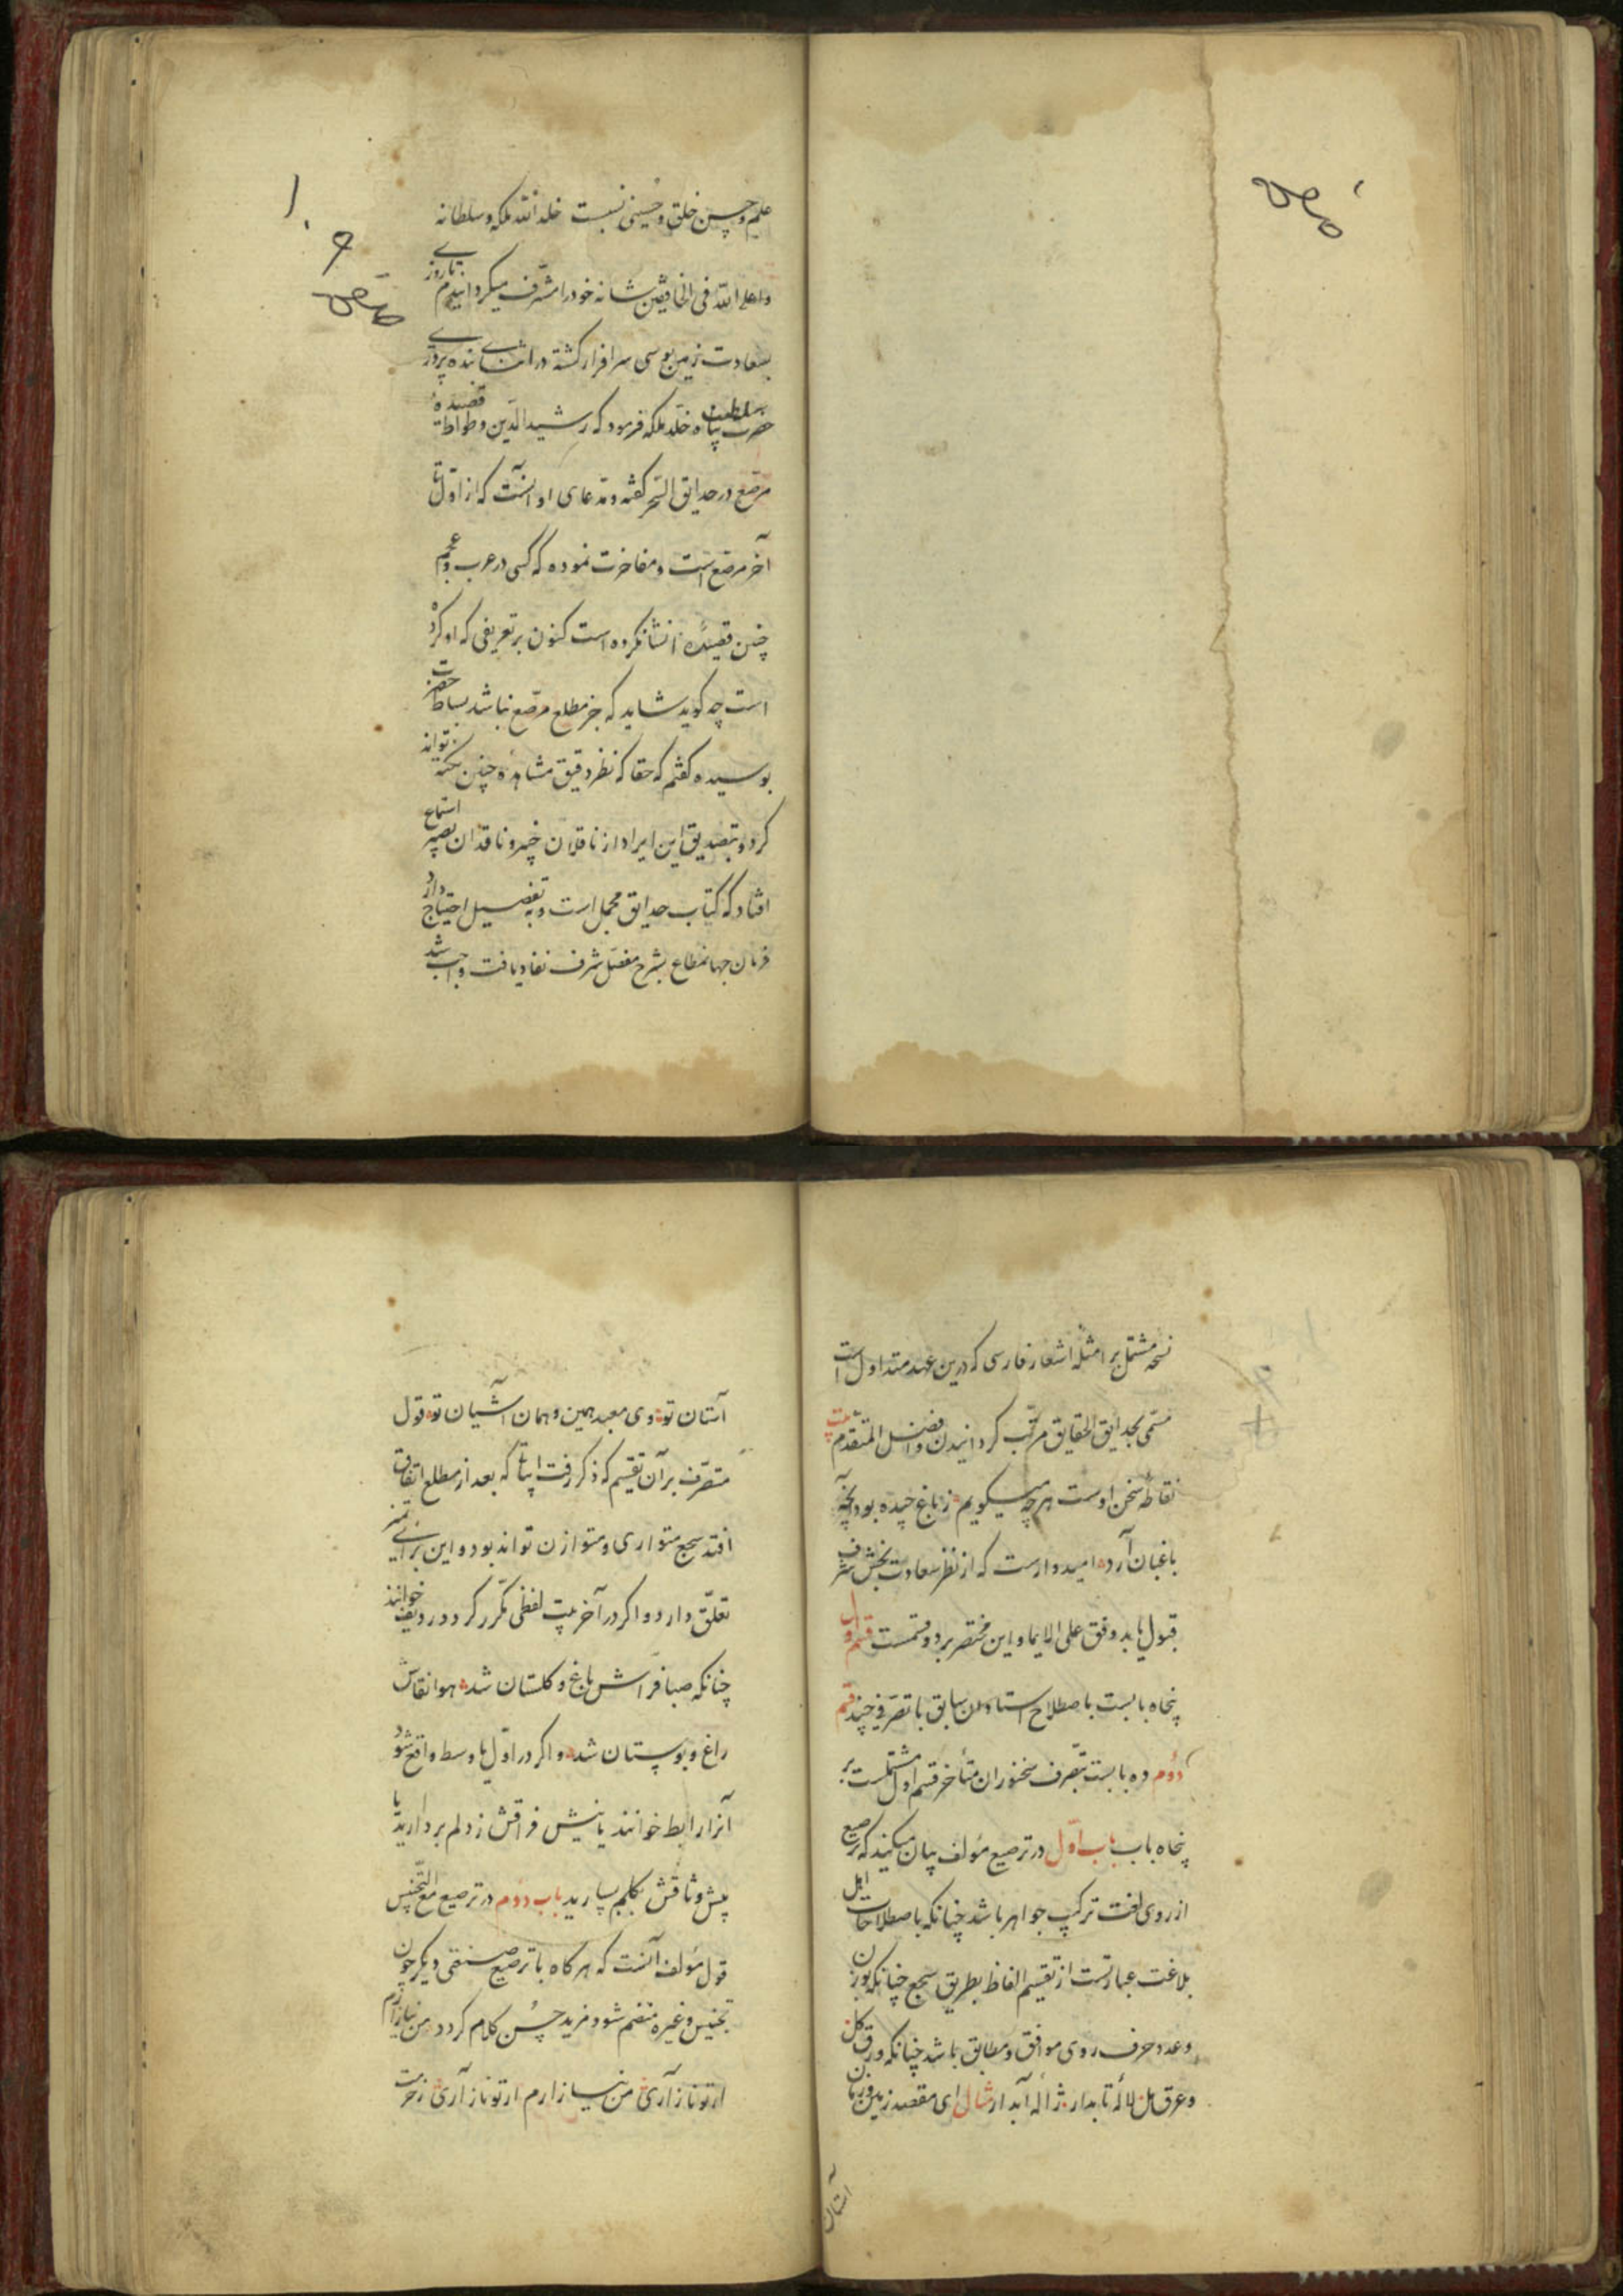 علیم و حسن خلق و حسینی نسبت خلد الله ملکه و سلطانه
واعلی الله فی الخافقین شانه خود را مشرف میکردانیدم تا روزی
بسعادت زمین بوسی سرافراز کشته در اثنای بنده پروری
حضرت سلطنت پناه خلد ملکه فرمود که رشید الدین وطواط قصیدهٔ
مرصع در حدایق السحر کفته و مدعای او آنست که از اول تا
آخر مرصع است و مفاخرت نموده که کسی در عرب و عجم
چنین قصیدهٔ انشا نکرده است کنون بر تعریفی که او کرده
است چه کوید شاید که جز مطلع مرصع نباشد بساط حضرت
بوسیده کفتم که حقا که نظر دقیق مشاهده چنین نکته تواند
کرد و تصدیق این ایراد از ناقلان خبیر و ناقدان بصیر استماع
افتاد که کتاب حدایق مجمل است و به تفصیل احتیاج دارد
فرمان جهانمطاع بشرح مفصل شرف نفاذ یافت واجب شد
نسخه مشتمل بر امثله اشعار فارسی که درین عهد متداول است
مسمی بحدایق الحقایق مرتب کردانیدن و الفضل للمتقدم بیت
نقاطهٔ سخن اوست هرچه میکویم ز باغ چیده بود آنچه
باغبان آرد امیدوارست که از نظر سعادت بخش شرف
قبول یابد وفق علی الایما و این مختصر بر دو قسمست قسم اول
پنجاه بابست باصطلاح استادان سابق با تصرفی چند قسم
دوم ده بابست بتصرف سخنوران متأخر قسم اول مشتملست بر
پنجاه باب باب اول در ترصیع مؤلف بیان میکند که ترصیع
از روی لغت ترکیب جواهر باشد چنانکه باصطلاحات اهل
بلاغت عبارتست از تقسیم الفاظ بطریق سجع چنانکه بوزن
و عدد حرف روی موافق و مطابق باشد چنانکه ورق کل
و عرق مل لاله تابدار ژاله آبدار مثال ای مقصد زمین و زمان
آستان
آستان تو وی معبد همین و همان آشیان تو قول
متصرف بر آن تقسیم که ذکر رفت ابیات که بعد از مطلع اتفاق
افتد سجع متواری و متوازن تواند بود و این برای تمیز
تعلق دارد و اکر در آخر بیت لفظی مکرر کردد ردیف خوانند
چنانکه صبا فراش باغ و کلستان شد هوا نقاش
راغ و بوستان شد و اکر در اول یا وسط واقع شود
آنرا رابط خوانند یا نیش فراقش ز دلم بردارید یا
پیش وثاقش بکلیم بسپارید باب دوم در ترصیع مع التجنیس
قول مؤلف آنست که هر کاه با ترصیع صنعتی دیکر چون
تجنیس و غیره منضم شود مزید حسن کلام کردد من نیاز آرم
ار تو ناز آری من نیازارم ار تو ناز آری